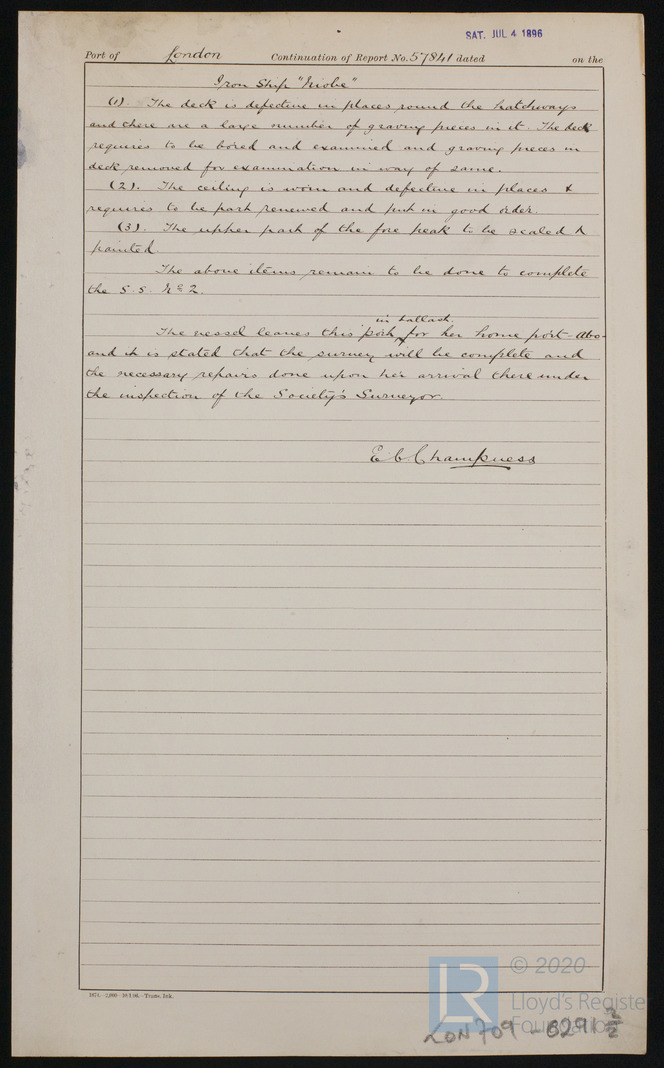 SAT. JUL 4 1896
Port of London Continuation of Report No. 57841 dated on the
Iron Ship "Niobe"
(1) The deck is defective in places round the hatchways
and there are a large number of graving pieces in it. The deck
requires to be bored and examined and graving pieces in
deck removed for examination in way of same.
(2). The ceiling is worn and defective in places &
requires to be part renewed and put in good order.
(3). The upper part of the fore peak to be scaled &
painted.
The above items remain to be done to complete
the S.S. No 2.
in ballast.
The vessel leaves this port for her home port - Abo -
and it is stated that the survey will be complete and
the necessary repairs done upon her arrival there under
the inspection of the Society's Surveyor.
E C Champness
1874.—2,000—10,1,96.—Trans. Ink.
LR
© 2020
Lloyd's Register
Foundation
LON 709 - 0291